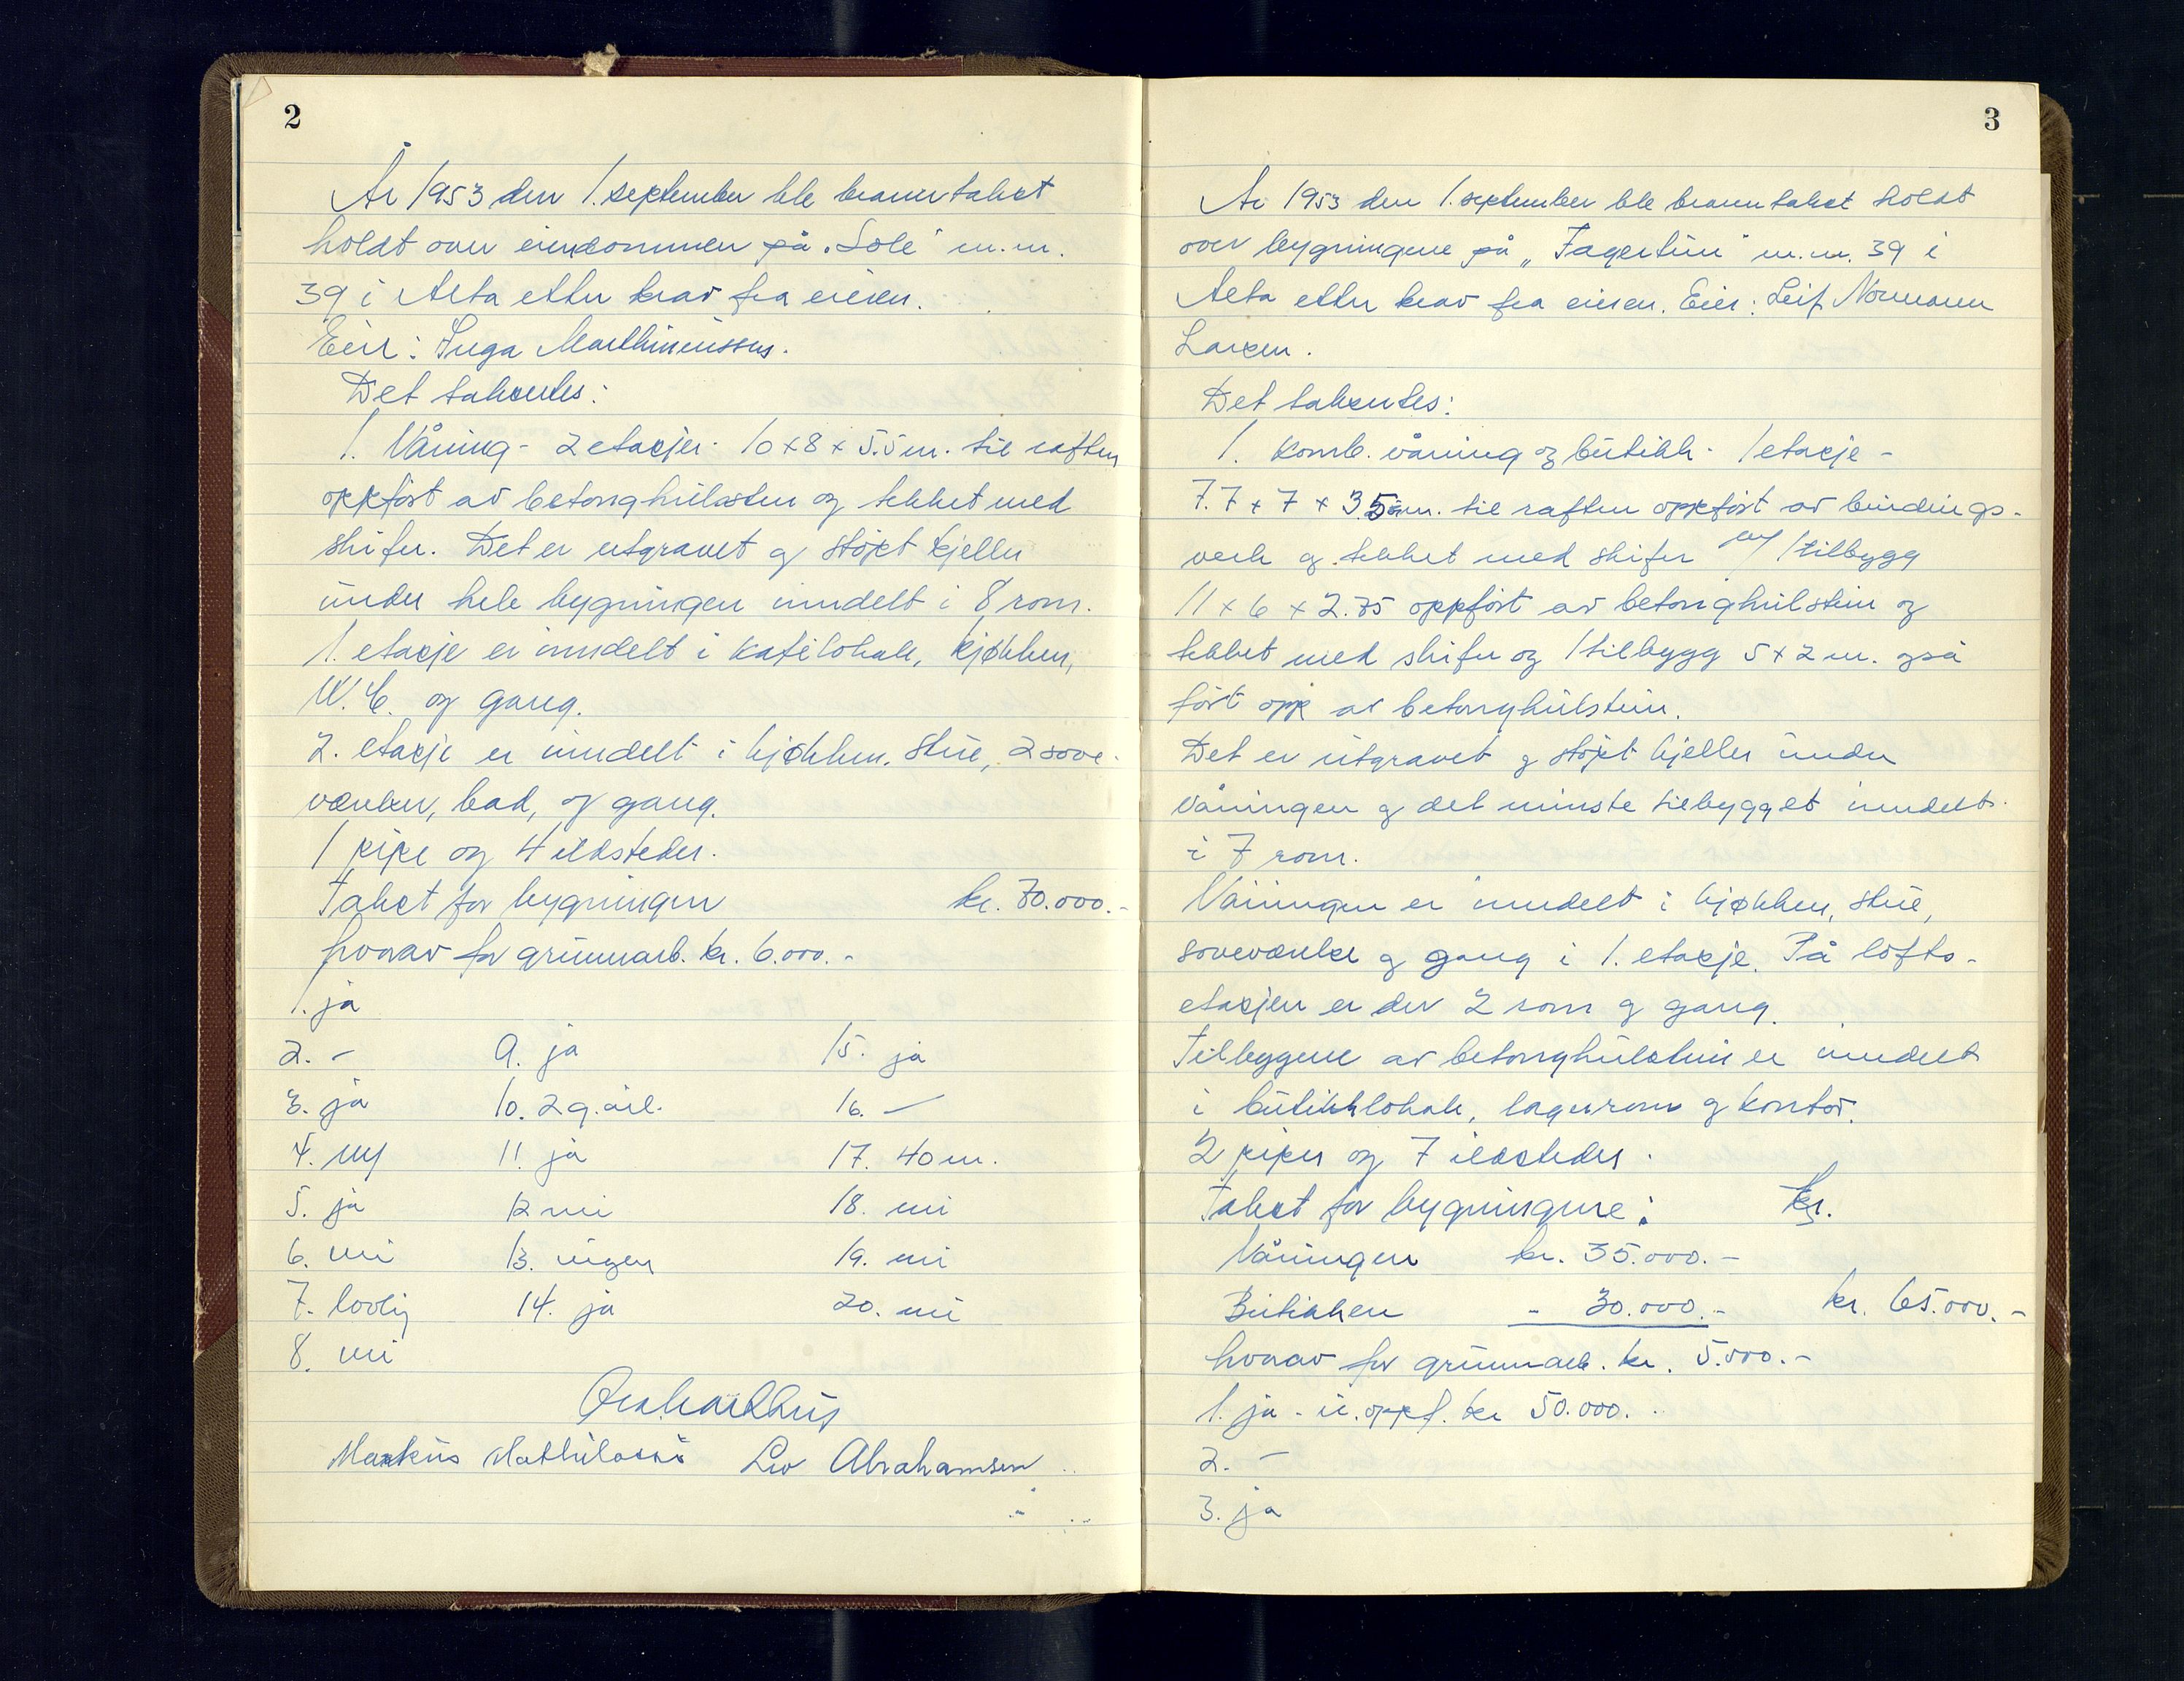 2
År 1953 den 1. september ble branntakst
holdt over eiendommen på "Sole" m.m.
39 i Alta etter krav fra eieren.
Eier: Inga Marthinussen.
Det taksertes:
1. Våning - 2 etasjer - 10 x 8 x 5.5 m. til raften
oppført av betonghulsten og tekket med
skifer. Det er utgravet og støpt kjeller
under hele bygningen inndelt i 8 rom.
1. etasje er inndelt i kafélokale, kjøkken,
W.C. og gang.
2. etasje er inndelt i kjøkken, stue, 2 sove-
værelser, bad, og gang.
1 pipe og 4 ildsteder.
Takst for bygningen kr. 70.000.-
hvorav for grunnarb. kr. 6.000.-
1. ja
2. - 9. ja 15. ja
3. ja 10. 2 g. årl. 16. -
4. ny 11. ja 17. 40 m.
5. ja 12 nei 18. nei
6. nei 13. ingen 19. nei
7. lovlig 14. ja 20. nei
8. nei
Markus Leo Abrahamsen
3
År 1953 den 1. september ble branntakst holdt
over bygningene på "Fagertun" m.m. 39 i
Alta etter krav fra eieren. Eier: Leif Normann
Larsen.
Det taksertes:
1. Komb. våning og butikk - 1 etasje -
7.7 x 7 x 3.5 m. til raften oppført av bindings-
verk og tekket med skifer og 1 tilbygg
11 x 6 x 2.75 oppført av betonghulstein og
tekket med skifer og 1 tilbygg 5 x 2 m. også
ført opp av betonghulstein.
Det er utgravet og støpt kjeller under
våningen og det minste tilbygget inndelt
i 7 rom.
Våningen er inndelt i kjøkken, stue,
soveværelse og gang i 1. etasje. På lofts-
etasjen er der 2 rom og gang.
Tilbyggene av betonghulstein er inndelt
i butikklokale, lagerrom og kontor.
2 piper og 7 ildsteder.
Takst for bygningene: Kr.
Våningen kr. 35.000.-
Butikken - 30.000.- kr. 65.000.-
hvorav for grunnarb. kr. 5.000.-
1. ja - u. oppf. kr 50.000.
2. -
3. ja